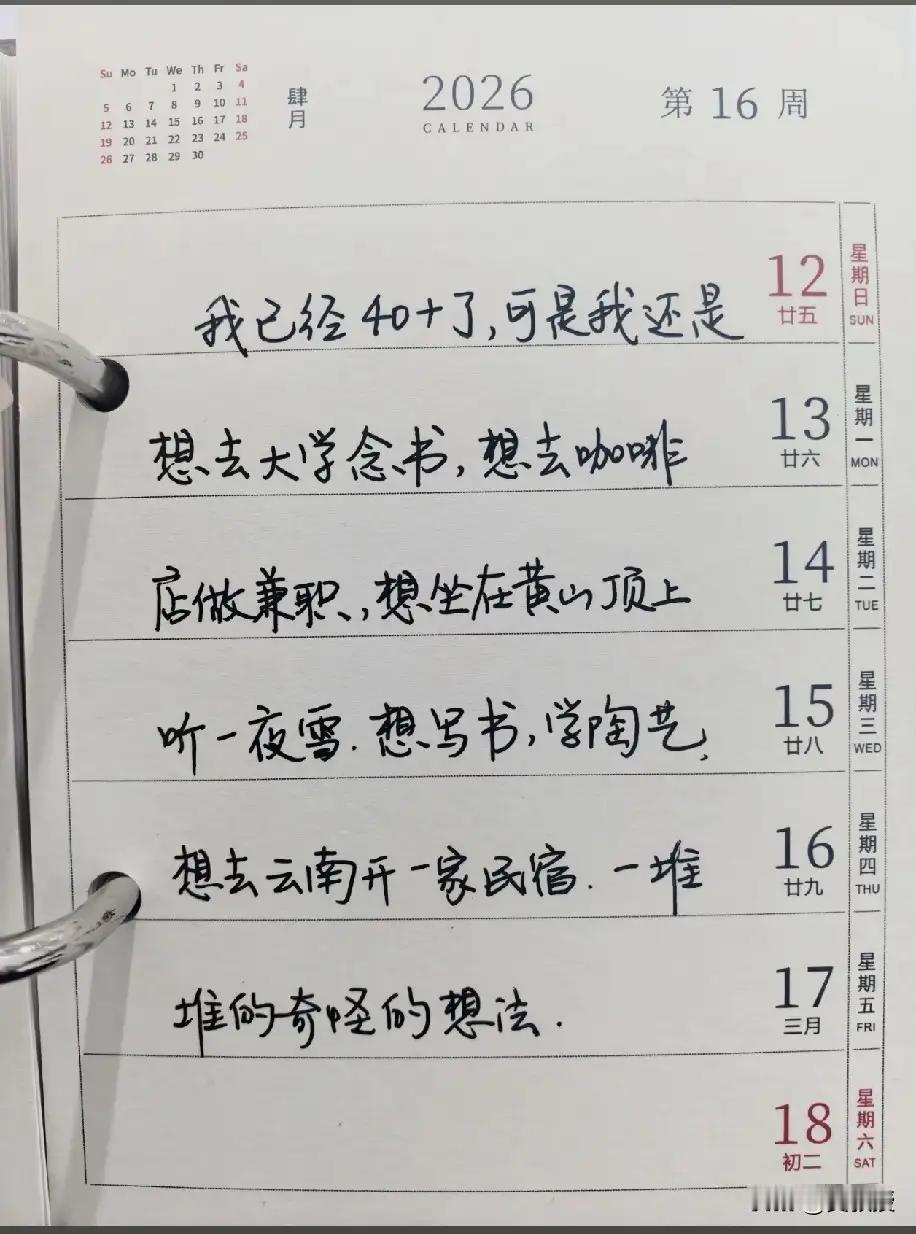 Su Mo Tu We Th Fr Sa
1 2 3 4
5 6 7 8 9 10 11
12 13 14 15 16 17 18
19 20 21 22 23 24 25
26 27 28 29 30
肆月
2026
CALENDAR
第 16 周
12
廿五
星期日
SUN
我已经40+了,可是我还是
13
廿六
星期一
MON
想去大学念书,想去咖啡
14
廿七
星期二
TUE
店做兼职,想坐在黄山顶上
15
廿八
星期三
WED
听一夜雪.想写书,学陶艺,
16
廿九
星期四
THU
想去云南开一家民宿.一堆
17
三月
星期五
FRI
堆的奇怪的想法.
18
初二
星期六
SAT